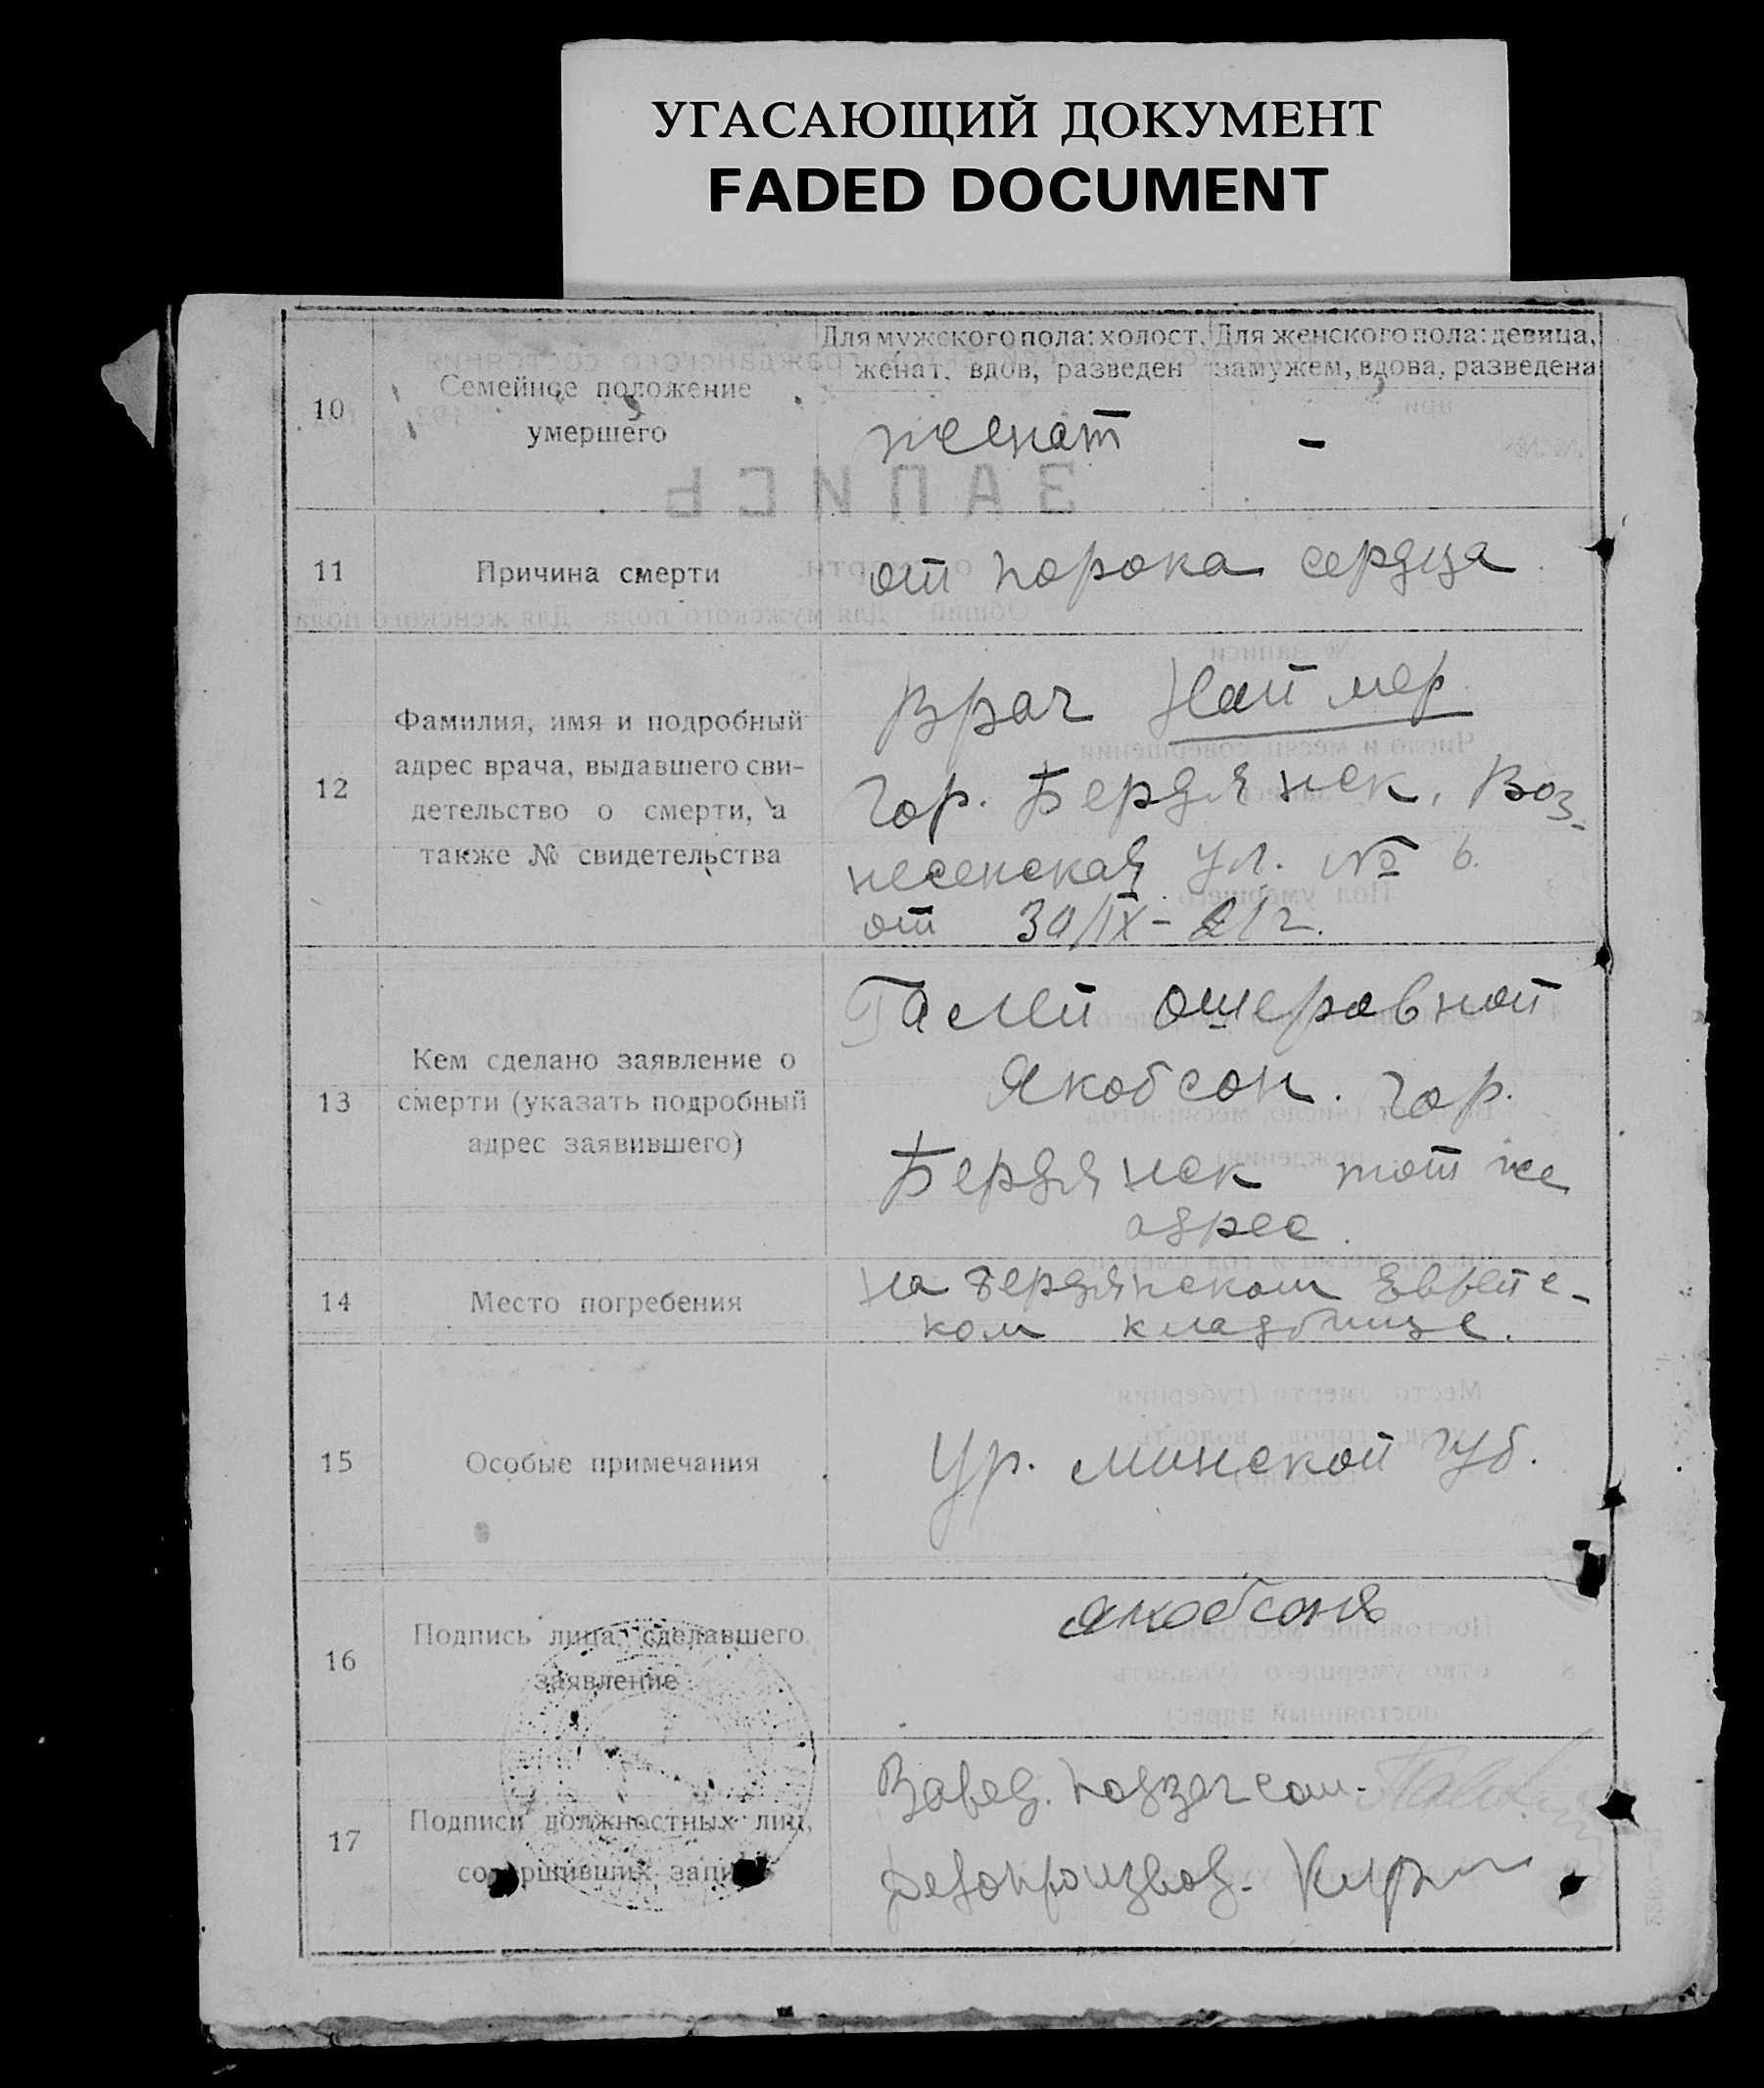 УГАСАЮЩИЙ ДОКУМЕНТ
FADED DOCUMENT
10
Семейное положение
умершего
Для мужского пола: холост,
женат, вдов, разведен
Для женского пола: девица,
замужем, вдова, разведена
женат
-
ЗАПИСЬ
11
Причина смерти
от порока сердца
12
Фамилия, имя и подробный
адрес врача, выдавшего сви-
детельство о смерти, а
также № свидетельства
Врач Наймер
Гор. Бердянск, Воз-
несенская ул. № 6.
от 30/IX - 21 г.
13
Кем сделано заявление о
смерти (указать подробный
адрес заявившего)
Ошеровной
Якобсон. Гор.
Бердянск тот же
адрес.
14
Место погребения
на Бердянском Еврейс-
ком кладбище.
15
Особые примечания
Ур. Минской Губ.
16
Подпись лица, сделавшего
заявление
17
Подписи должностных лиц,
совершивших запись
Завед. подзагсом.
Делопроизвод.